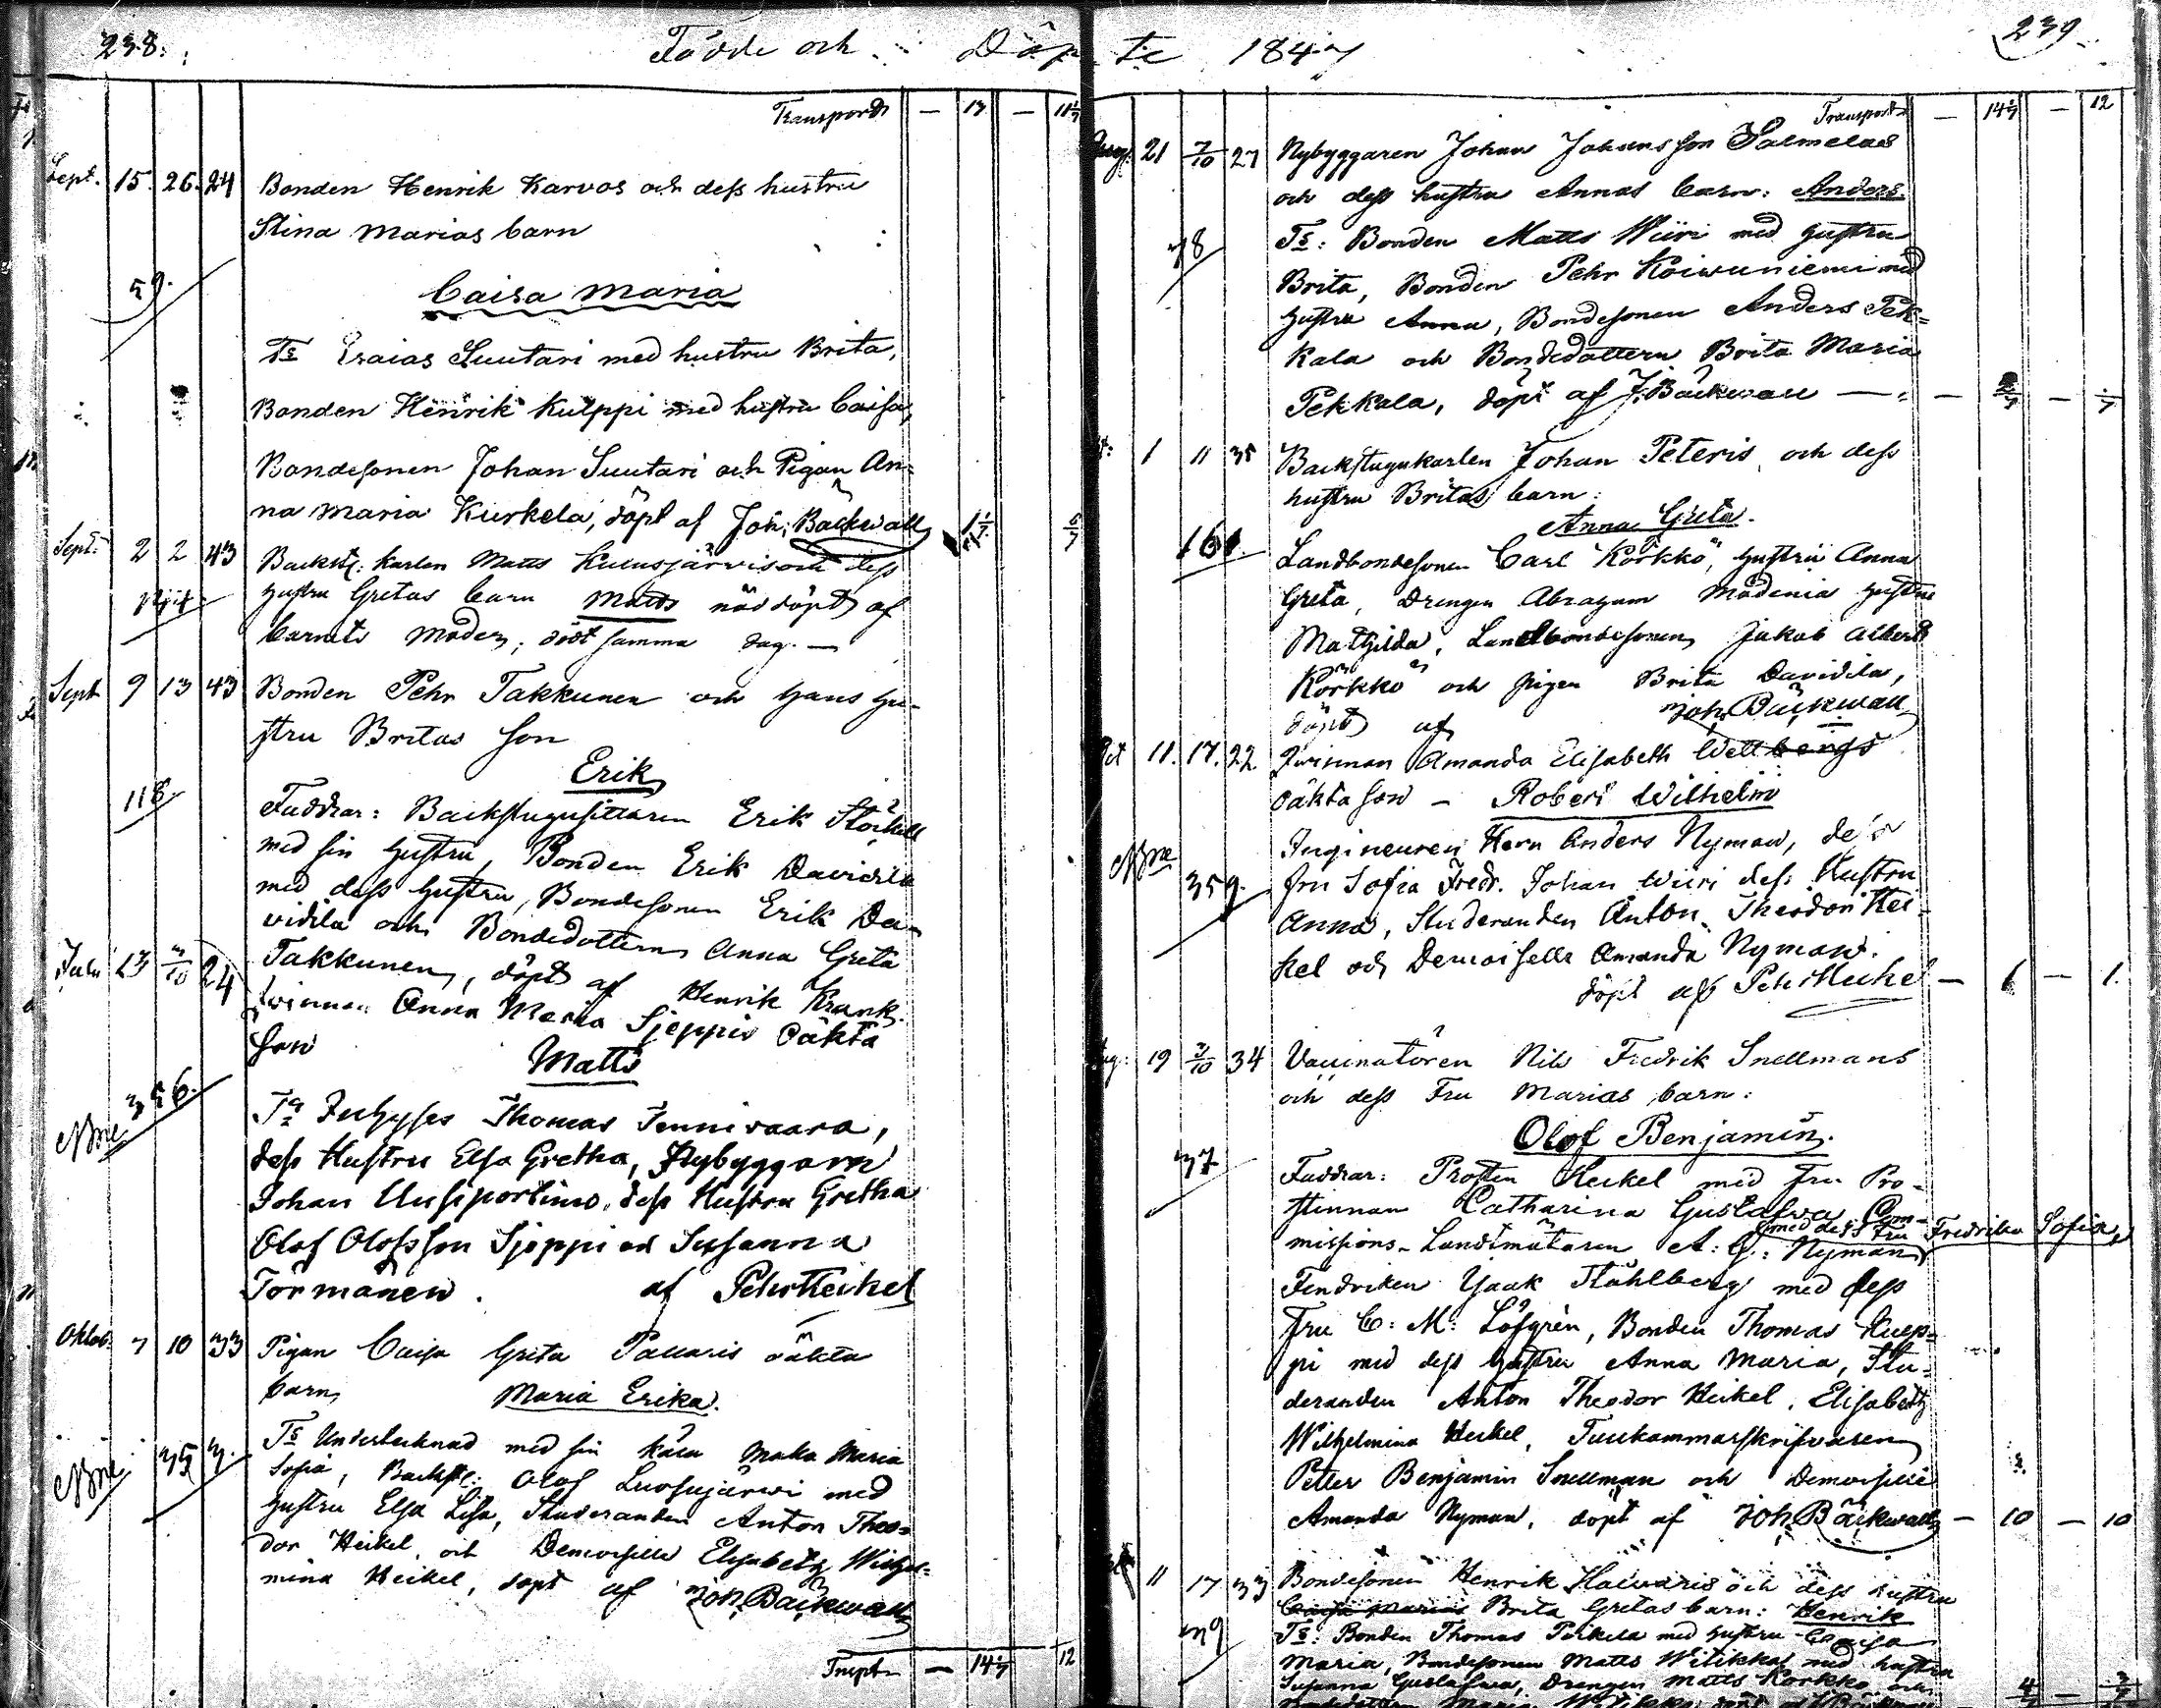 238.
Födde och Döpte 1847
239
Transport — 13 — 11 1/7
Sept. 15. 26. 24 Bonden Henrik Karvos och dess hustru
Stina Marias barn
59.
Caisa Maria
Ts Esaias Suutari med hustru Brita,
Bonden Henrik Kulppi med hustru Caisa,
Bondesonen Johan Suutari och Pigan An-
na Maria Kurkela, döpt af Joh: Bäckwall
Sept: 2 2 43 Backst: karlen Matts Kuusjärvis och dess
hustru Gretas barn Matts nöddöpt af
barnets moder, dödt samma dag. —
Sept 9 13 43 Bonden Pehr Takkunen och hans hu-
stru Britas son
Erik
118.
Faddrar: Backstugusittaren Erik Störhell
med sin hustru, Bonden Erik Davidila
med dess hustru, Bondesonen Erik Da-
vidila och Bondedottern Anna Greta
Takkunen, döpt af Henrik Krank.
23 3/10 24 Qvinnan Anna Maria Sjeppis oäkta
son Matts
356.
Thomas Tennivaara,
dess Hustru Elsa Gretha, Nybyggarn
Johan dess Hustru Gretha
Olof Olofsson Sjeppi och Susanna
Törmänen. af Pehr Heikel
Oktob 7 10 33 Pigan Caisa Greta oäkta
barn, Maria Erika.
353.
Ts Undertecknad med sin kära Maka Maria
Sofia, Backst: Olof Luosujärwi med
hustru Elsa Lisa, Studeranden Anton Theo-
dor Heikel, och Demoiselle Elisabeth Wilhel-
mina Heikel, döpt af Joh. Bäckwall
Trnspt — 14 1/7 12
Transport — 14 1/7 — 12
Aug: 21 7/10 27 Nybyggaren Johan Johansson Salmelas
och dess hustru Annas barn: Anders
78
Ts: Bonden Matts Wiiri med hustru
Brita, Bonden Pehr Koivuniemi med
hustru Anna, Bondesonen Anders Pek-
kala och Bondedottern Brita Maria
Pekkala, döpt af J. Bäckwall — — 2/7 — 1/7
1 11 35 Backstugukarlen Johan Peteris och dess
hustru Britas barn:
Anna Greta.
161.
Landbondesonen Carl Körkkö, hustru Anna
Greta, Drengen Abraham hustru
Mathilda, Landbondesonen Jakob Albert
Körkkö och pigan Brita Davidila,
döpt af Joh. Bäckwall
Oct 11. 17. 22 Qvinnan Amanda Elisabeth Wettbergs
oäkta son — Robert Wilhelm
359.
Ingineuren Herr Anders Nyman, dess
fru Sofia Fredr. Johan Wiiri dess Hustru
Anna, Studeranden Anton Theodor Hei-
kel och Demoiselle Amanda Nyman.
döpt af Pehr Heikel — 1 — 1.
Aug: 19 3/10 34 Vaccinatören Nils Fredrik Snellmans
och dess Fru Marias barn:
Olof Benjamin.
37
Faddrar: Prosten Heikel med fru Pro-
stinnan Catharina Gustafva, Com-
missions-Landtmätaren A: G: Nyman med dess Fru Fredrika Sofia,
Fendriken Ståhlberg med dess
Fru C: M: Löfgrén, Bonden Thomas Kulp-
pi med dess hustru Anna Maria, Stu-
deranden Anton Theodor Heikel, Elisabeth
Wilhelmina Heikel, Tullkammarskrifvaren
Petter Benjamin Snellman och Demoiselle
Amanda Nyman, döpt af Joh. Bäckwall — 10 — 10
11 17 33 Bondesonen Henrik Halvaris och dess hustru
Caisa Marias Brita Gretas barn: Henrik
Ts: Bonden Thomas Perkela med hustru Caisa
Maria, Bondesonen Matts Witikka med hustru
Susanna Gustafva, Drengen Matts Körkkö och